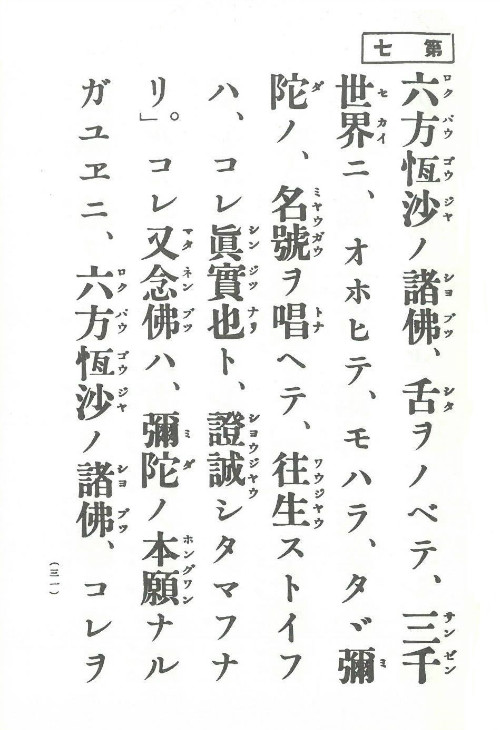 第七
六方恆沙ノ諸佛、舌ヲノベテ、三千
世界ニ、オホヒテ、モハラ、タヾ彌
陀ノ、名號ヲ唱ヘテ、往生ストイフ
ハ、コレ眞實也ト、證誠シタマフナ
リ。」コレ又念佛ハ、彌陀ノ本願ナル
ガユヱニ、六方恆沙ノ諸佛、コレヲ
(三一)